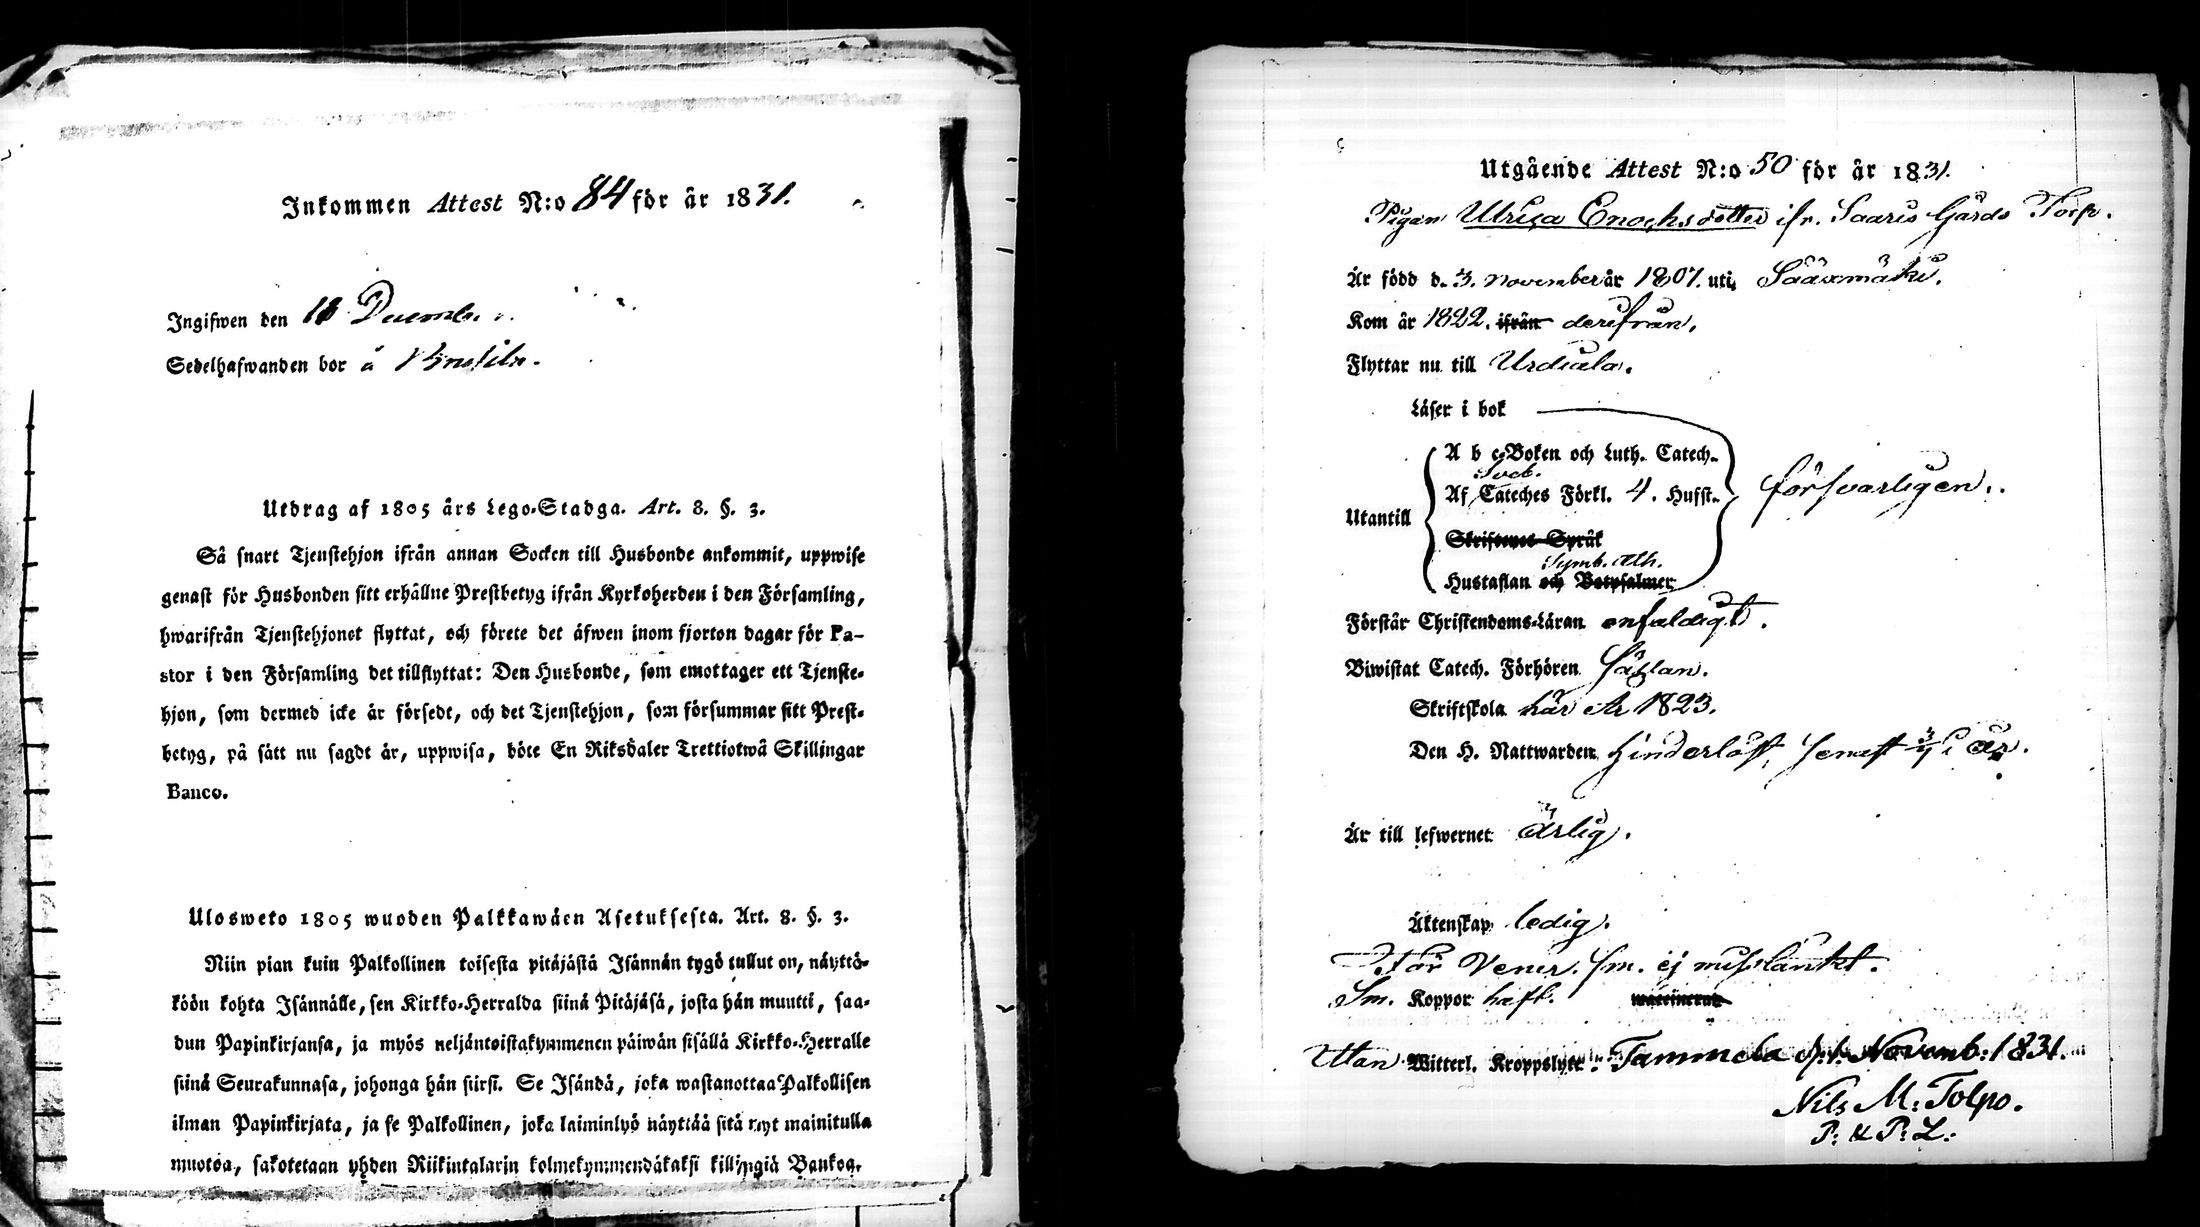 Inkommen Attest N:o 84 för år 1831.
Ingifwen den 18 Decemb.
Sedelhafwanden bor å
Utdrag af 1805 års Lego-Stadga. Art. 8. §. 3.
Så snart Tjenstehjon ifrån annan Socken till Husbonde ankommit, uppwise
genast för Husbonden sitt erhållne Prestbetyg ifrån Kyrkoherden i den Församling,
hwarifrån Tjenstehjonet flyttat, och förete det äfwen inom fjorton dagar för Pa-
stor i den Församling det tillflyttat: Den Husbonde, som emottager ett Tjenste-
hjon, som dermed icke är försedt, och det Tjenstehjon, som försummar sitt Prest-
betyg, på sätt nu sagdt är, uppwisa, böte En Riksdaler Trettiotwå Skillingar
Banco.
Ulosweto 1805 wuoden Palkkawäen Asetuksesta. Art. 8. §. 3.
Niin pian kuin Palkollinen toisesta pitäjästä Isännän tygö tullut on, näyttö-
köön kohta Isännälle, sen Kirkko-Herralda siinä Pitäjäsä, josta hän muutti, saa-
dun Papinkirjansa, ja myös neljäntoistakymmenen päiwän sisällä Kirkko-Herralle
siinä Seurakunnasa, johonga hän siirsi. Se Isändä, joka wastanottaa Palkollisen
ilman Papinkirjata, ja se Palkollinen, joka laiminlyö näyttää sitä nyt mainitulla
muotoa, sakotetaan yhden Riikintalarin kolmekymmendäkaksi killingiä Bankoa.
Utgående Attest N:o 50 för år 1831.
Pigan Ulrica Enochsdotter ifr. Saaris Gårds Torp.
Är född d. 3. November år 1807. uti Sääxmäki.
Kom år 1822. ifrån derifrån.
Flyttar nu till Urdiala.
Läser i bok
A b c-Boken och Luth. Catech.
Sveb.
Af Cateches Förkl. 4. Hufst.
försvarligen.
Utantill
Skriftenes Språk
Symb. Ath.
Hustaflan och Botpsalmer
Förstår Christendoms-Läran enfaldigt.
Biwistat Catech. Förhören sällan.
Skriftskola här År 1823.
Den H. Nattwarden hinderlöst, senast i år.
Är till lefwernet ärlig.
Äktenskap ledig.
För Vener. sm. ej misstänkt.
Sm. Koppor haft. waccinerad
Utan Witterl. Kroppslyte. Tammela d. 1. Novemb: 1831.
Nils M: Tolpo.
P: & P: L: